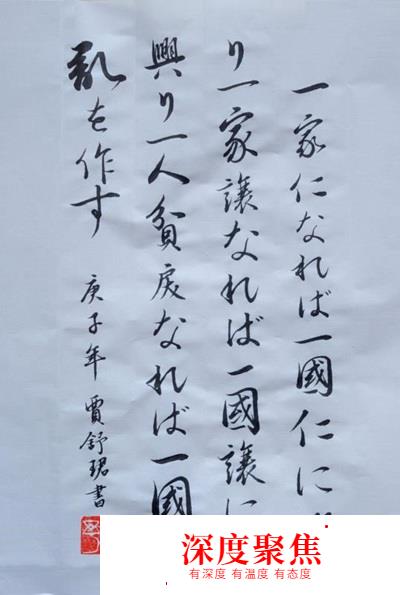 一家仁なれば一國仁に
り一家讓なれば一國讓に
興り一人貧戻なれば一國
亂を作す
庚子年 賈舒珺書
深度聚焦
有深度 有温度 有态度